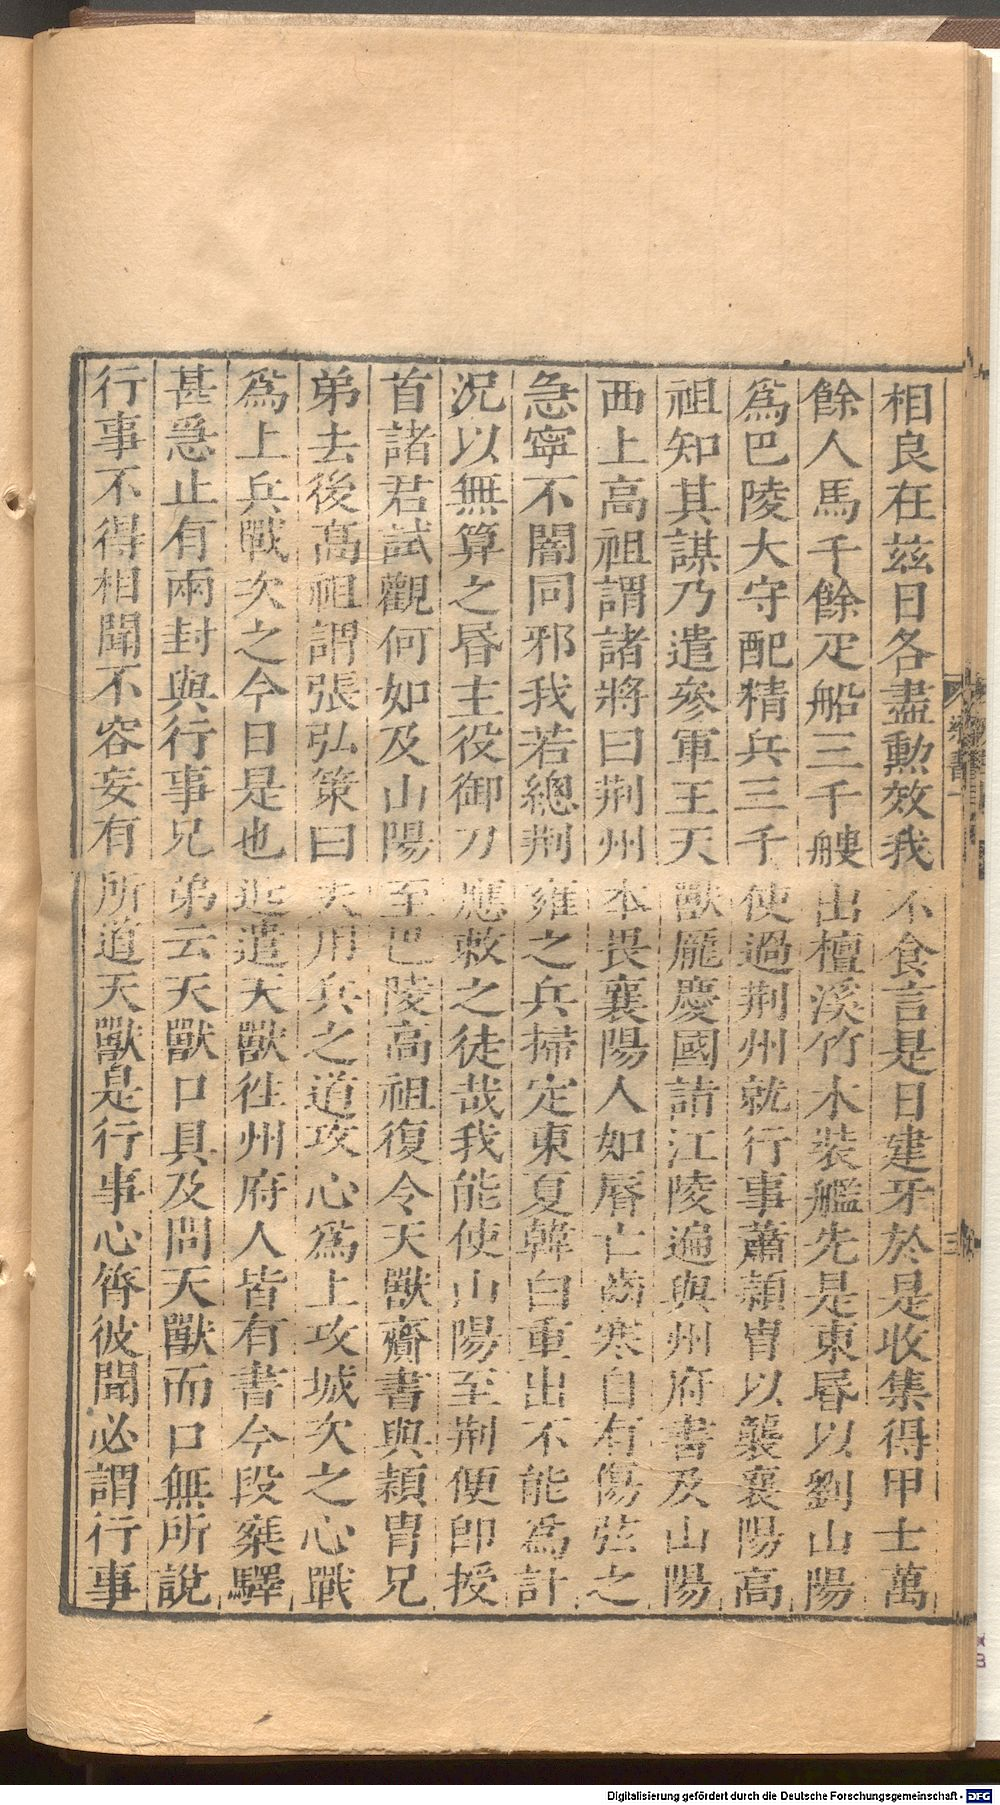 相良在茲日各盡勳效我不食言是日建牙於是收集得甲士萬
餘人馬千餘疋船三千艘出檀溪竹木裝艦先是東昏以劉山陽
爲巴陵大守配精兵三千使過荆州就行事蕭頴胄以襲襄陽高
祖知其謀乃遣參軍王天獸龐慶國詣江陵遍與州府書及山陽
西上高祖謂諸將曰荆州本畏襄陽人如脣亡齒寒自有傷弦之
急寧不闇同邪我若總荆雍之兵掃定東夏韓白重出不能爲計
況以無算之昏主役御刀應敕之徒哉我能使山陽至荆便卽授
首諸君試觀何如及山陽至巴陵高祖復令天獸齎書與頴胄兄
弟去後高祖謂張弘策曰夫用兵之道攻心爲上攻城次之心戰
爲上兵戰次之今日是也近遣天獸徃州府人皆有書今段椉驛
甚急止有兩封與行事兄弟云天獸口具及問天獸而口無所說
行事不得相聞不容妄有所道天獸是行事心膂彼聞必謂行事
梁書一
三
Digitalisierung gefördert durch die Deutsche Forschungsgemeinschaft - DFG